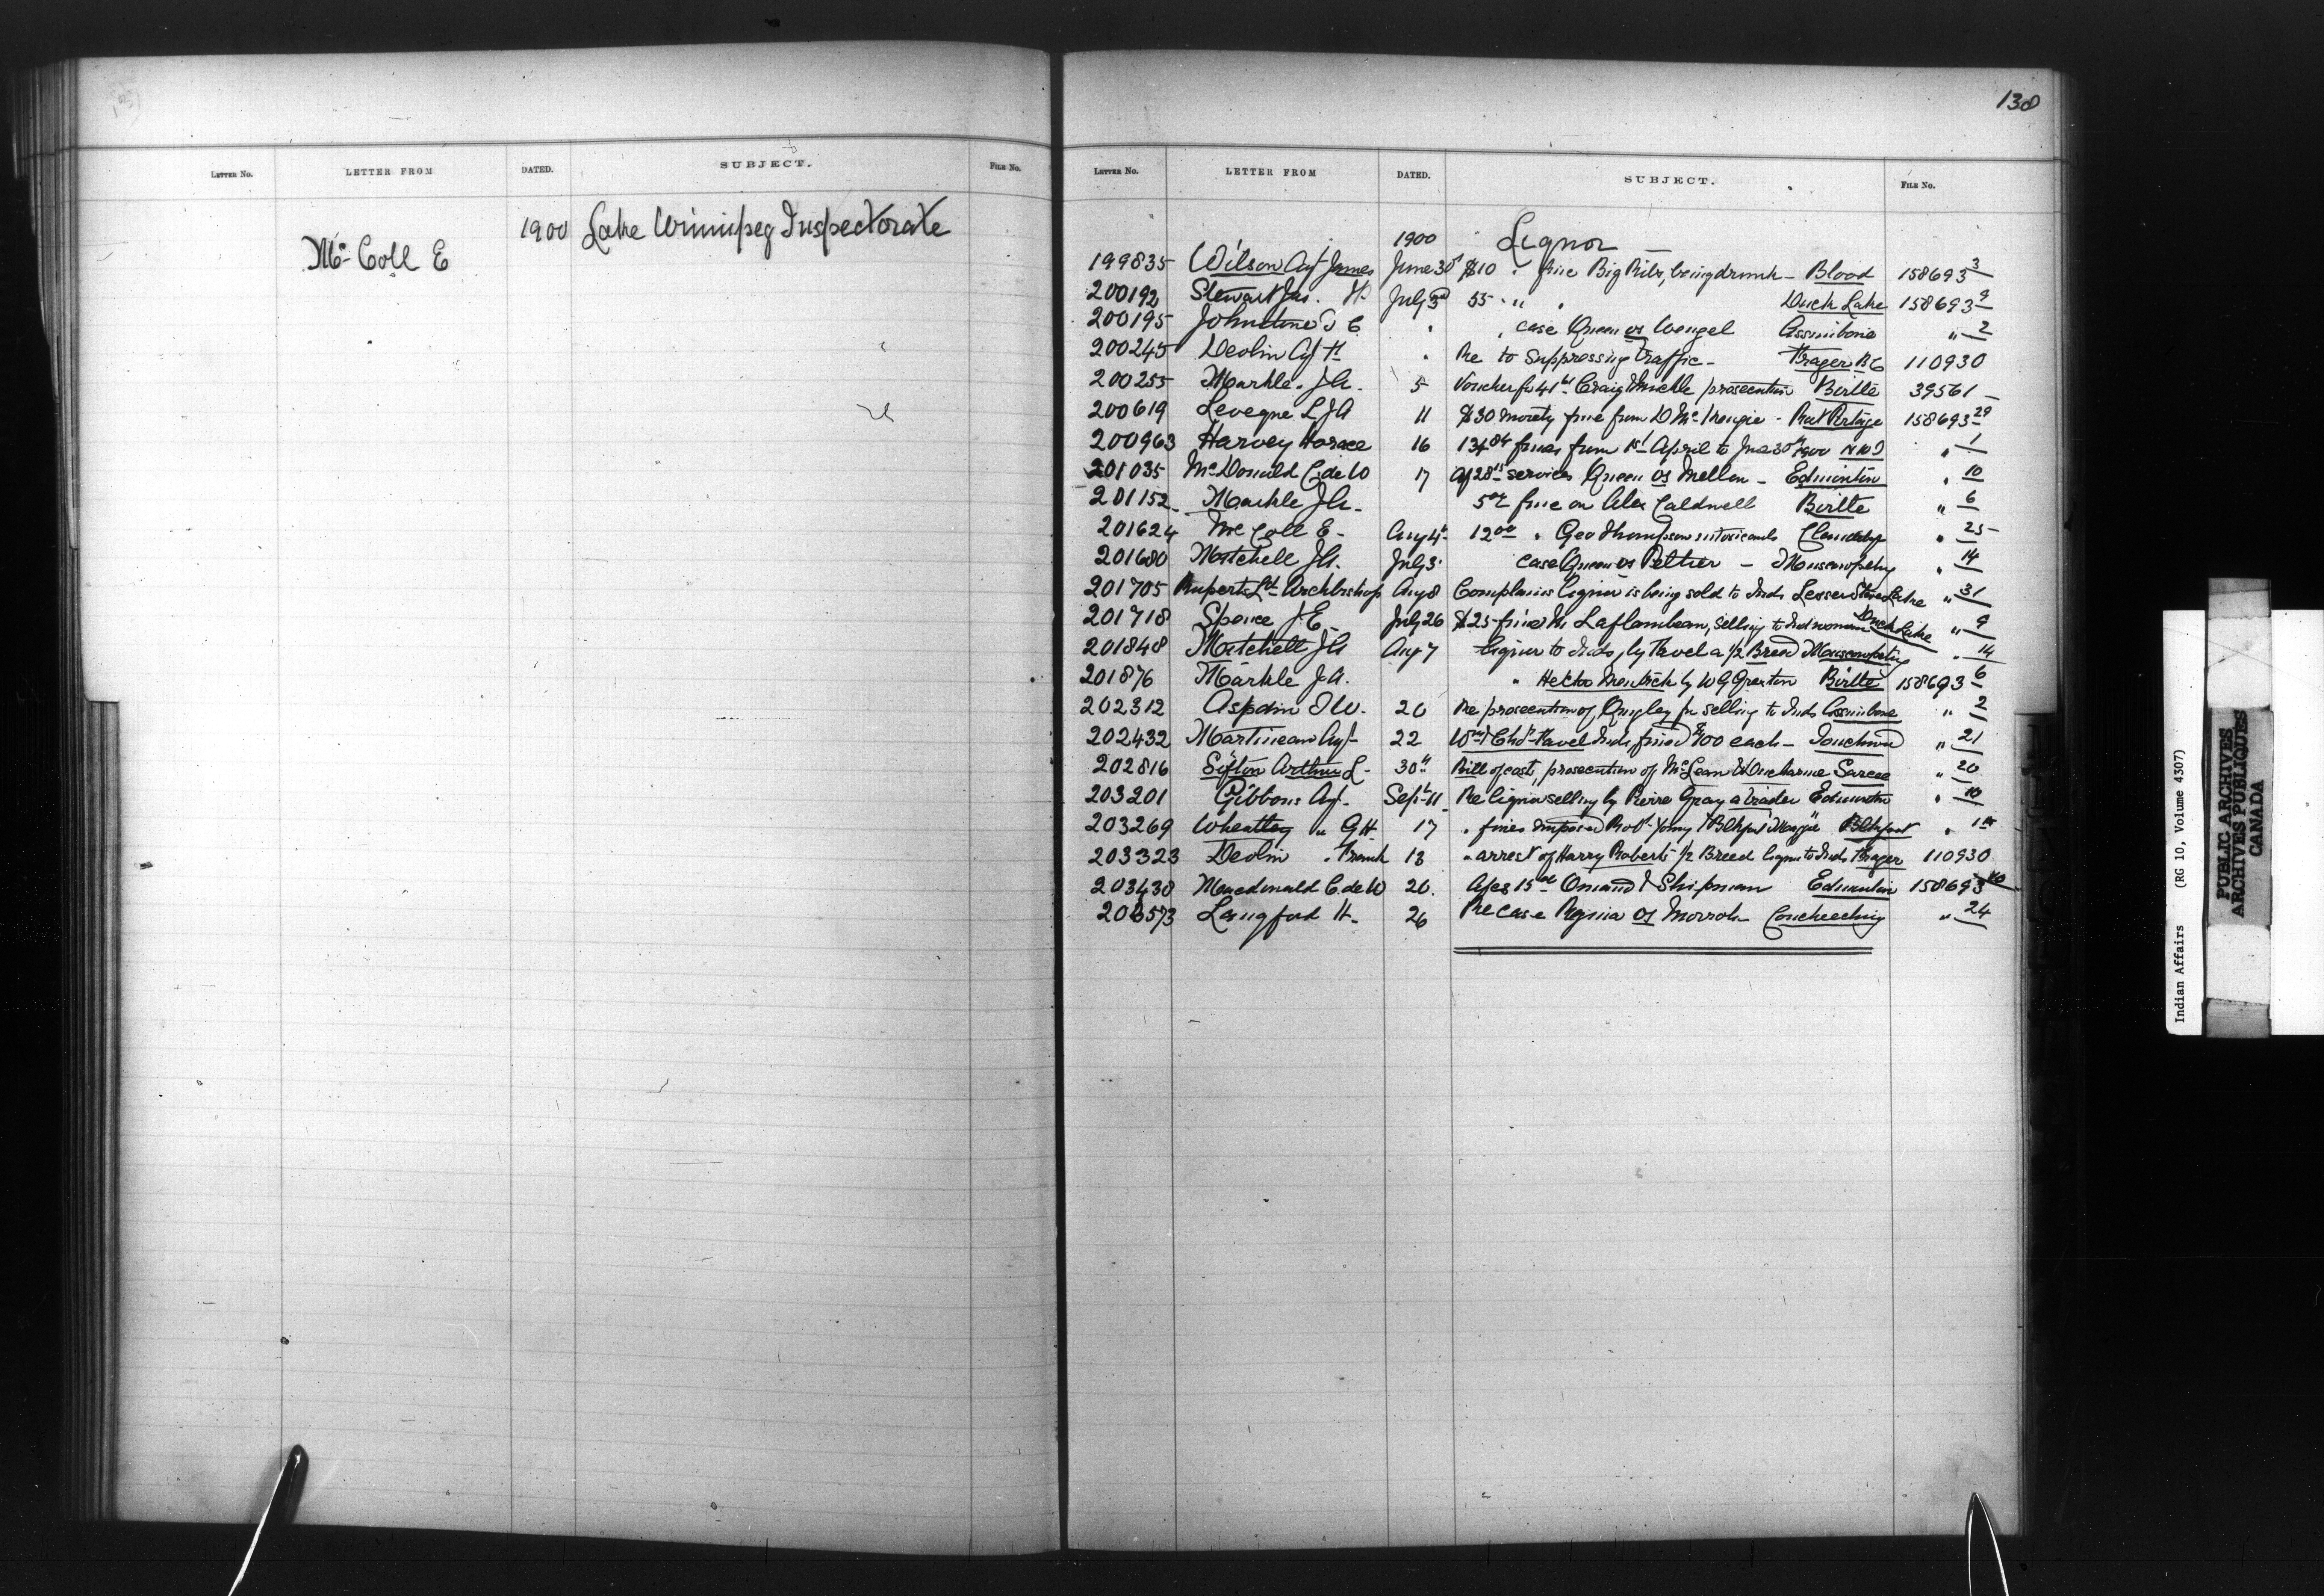 LETTER NO. LETTER FROM DATED. SUBJECT. FILE NO.
1900 Lake Winnipeg Inspectorate
Mc Coll E
138
LETTER NO. LETTER FROM DATED. SUBJECT. FILE NO.
1900 Liquor
199835 Wilson Agt James June 30 $10 " fine Big Rib, being drunk - Blood 158693 3
200192 Stewart Jas. July 3rd 55 " " Duck Lake 158693 9
200195 Johnstone T C " " case Queen vs Wengel Assiniboine " 2
200245 Devlin Agt " Re to suppressing traffic - Fraser BC 110930
200255 Markle J A. 5 Voucher for 41 Craig prosecution Birtle 39561
200619 Leveque L J A 11 $30 moiety fine from D Mc Kenzie - Rat Portage 158693 29
200963 Harvey Horace 16 134 84 fines from 1st April to June 30th 1900 " 1
201035 McDonald C de W 17 services Queen vs Mellon - Edmonton " 10
201152 Markle J A - 5 fine on Alex Caldwell Birtle " 6
201624 Mc Coll E - Aug 4 12 00 " Geo Thompson intoxicants Clandeboye " 25
201680 Mitchell J A. July 3 case Queen vs Peltier - Muscowpetung " 14
201705 Ruperts Ld Archbishop Aug 8 Complains liquor is being sold to Inds Lesser Slave Lake " 31
201718 Spence J E July 26 $25 fine Laflambeau, selling to Ind woman Duck Lake " 9
201848 Mitchell J A Aug 7 liquor to Inds, by Favel a 1/2 Breed Muscowpetung " 14
201876 Markle J A. " Hector by W G Braxton Birtle 158693 6
202312 Aspdin T W. 20 Re prosecution of Quigley for selling to Inds Assiniboine " 2
202432 Martineau Agt 22 Wm & Chas Favel Inds, fined $100 each - Touchwood " 21
202816 Sifton Arthur L - 30 Bill of cost, prosecution of McLean & Ducharme Sarcee " 20
203201 Gibbons Agt - Sept 11 Re liquor selling by Pierre Gray a trader Edmonton " 10
203269 Wheatley " G H 17 " fines imposed Robt Young Blkfoot " 1
203323 Devlin " Frank 13 " arrest of Harry Roberts 1/2 Breed liquor to Inds Fraser 110930
203430 Macdonald C de W 20. 15 & Shipman Edmonton 158693 10
203573 Langford H - 26 Re case Regina vs Morrow Coucheeching " 24
Indian Affairs (RG 10, Volume 4307)
PUBLIC ARCHIVES
ARCHIVES PUBLIQUES
CANADA